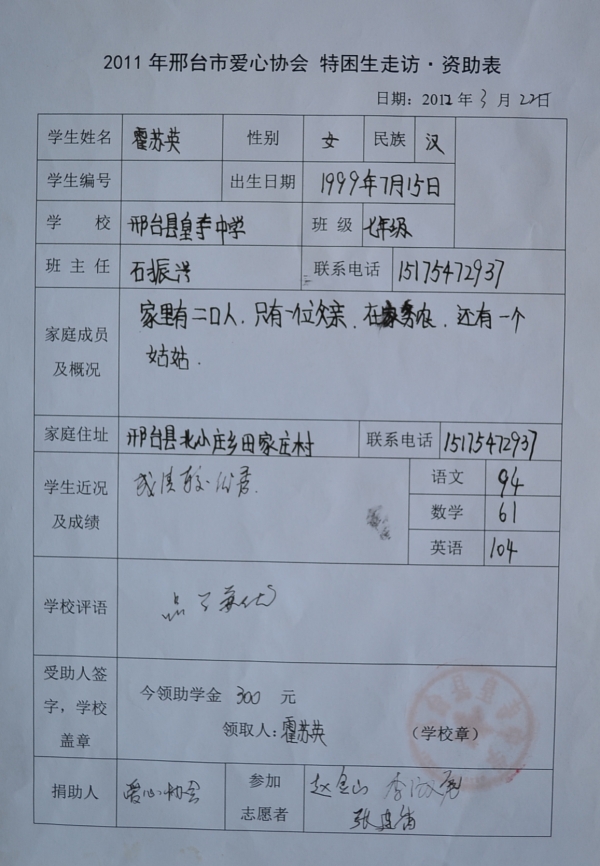 2011年邢台市爱心协会 特困生走访·资助表
日期：2012年3月22日
学生姓名 霍苏英 性别 女 民族 汉
学生编号 出生日期 1999年7月15日
学 校 邢台县皇寺中学 班 级 七年级
班 主 任 石振兴 联系电话 15175472937
家庭成员及概况
家里有二口人，只有一位父亲，在家务农，还有一个
姑姑．
家庭住址 邢台县北小庄乡田家庄村 联系电话 15175472937
学生近况及成绩
成绩较优秀．
语文 94
数学 61
英语 104
学校评语
品学兼优
受助人签字，学校盖章
今领助学金 300 元
领取人：霍苏英 （学校章）
捐助人 爱心协会 参加志愿者 赵金山